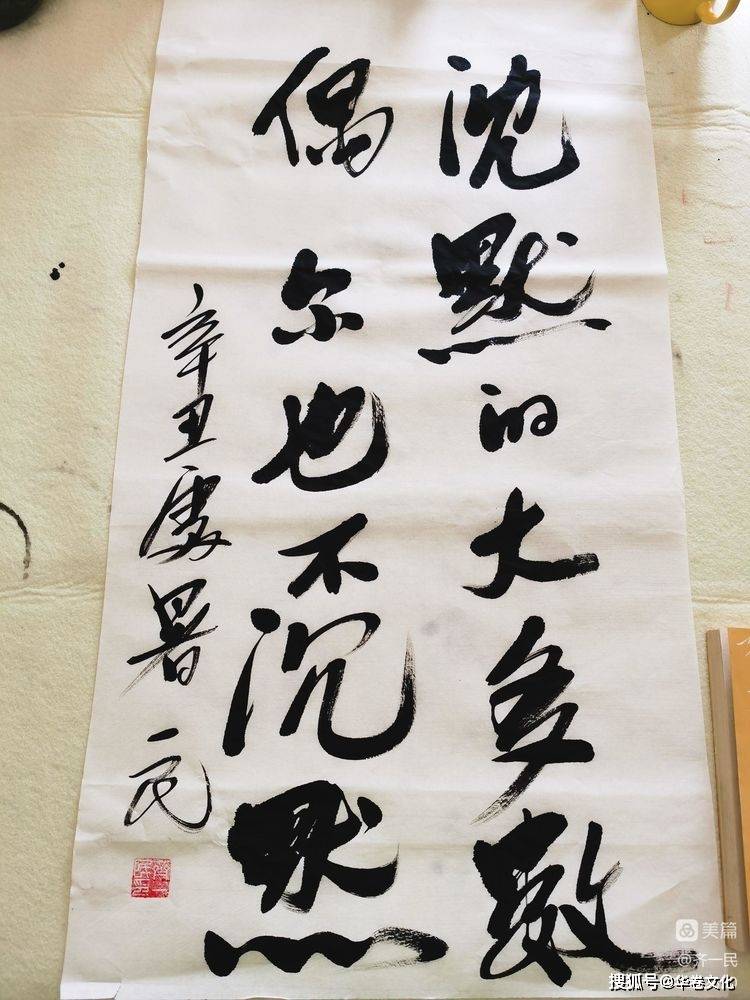 沈默的大多数
偶尔也不沉默
辛丑处暑一民
美篇
@齐一民
搜狐号@华卷文化